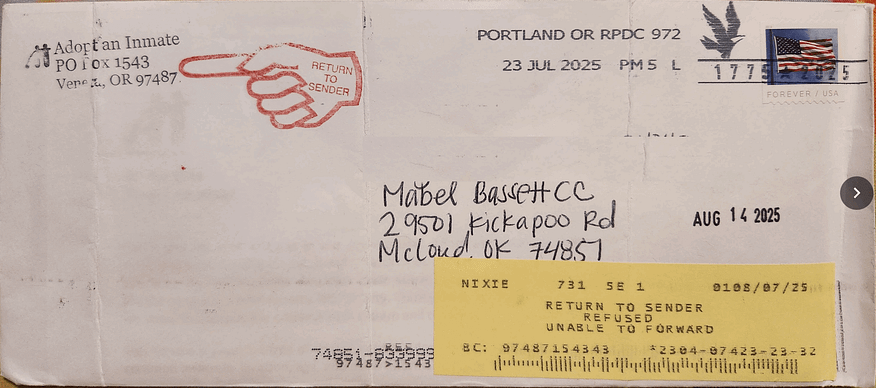 Adopt an Inmate
PO Box 1543
Veneta, OR 97487
RETURN
TO
SENDER
PORTLAND OR RPDC 972
23 JUL 2025 PM 5 L
1775 ★ 2025
FOREVER / USA
Mabel Bassett CC
29501 Kickapoo Rd
McLoud, OK 74851
AUG 14 2025
NIXIE 731 SE 1 0108/07/25
RETURN TO SENDER
REFUSED
UNABLE TO FORWARD
BC: 97487154343 *2304-07423-23-32
97487>1543